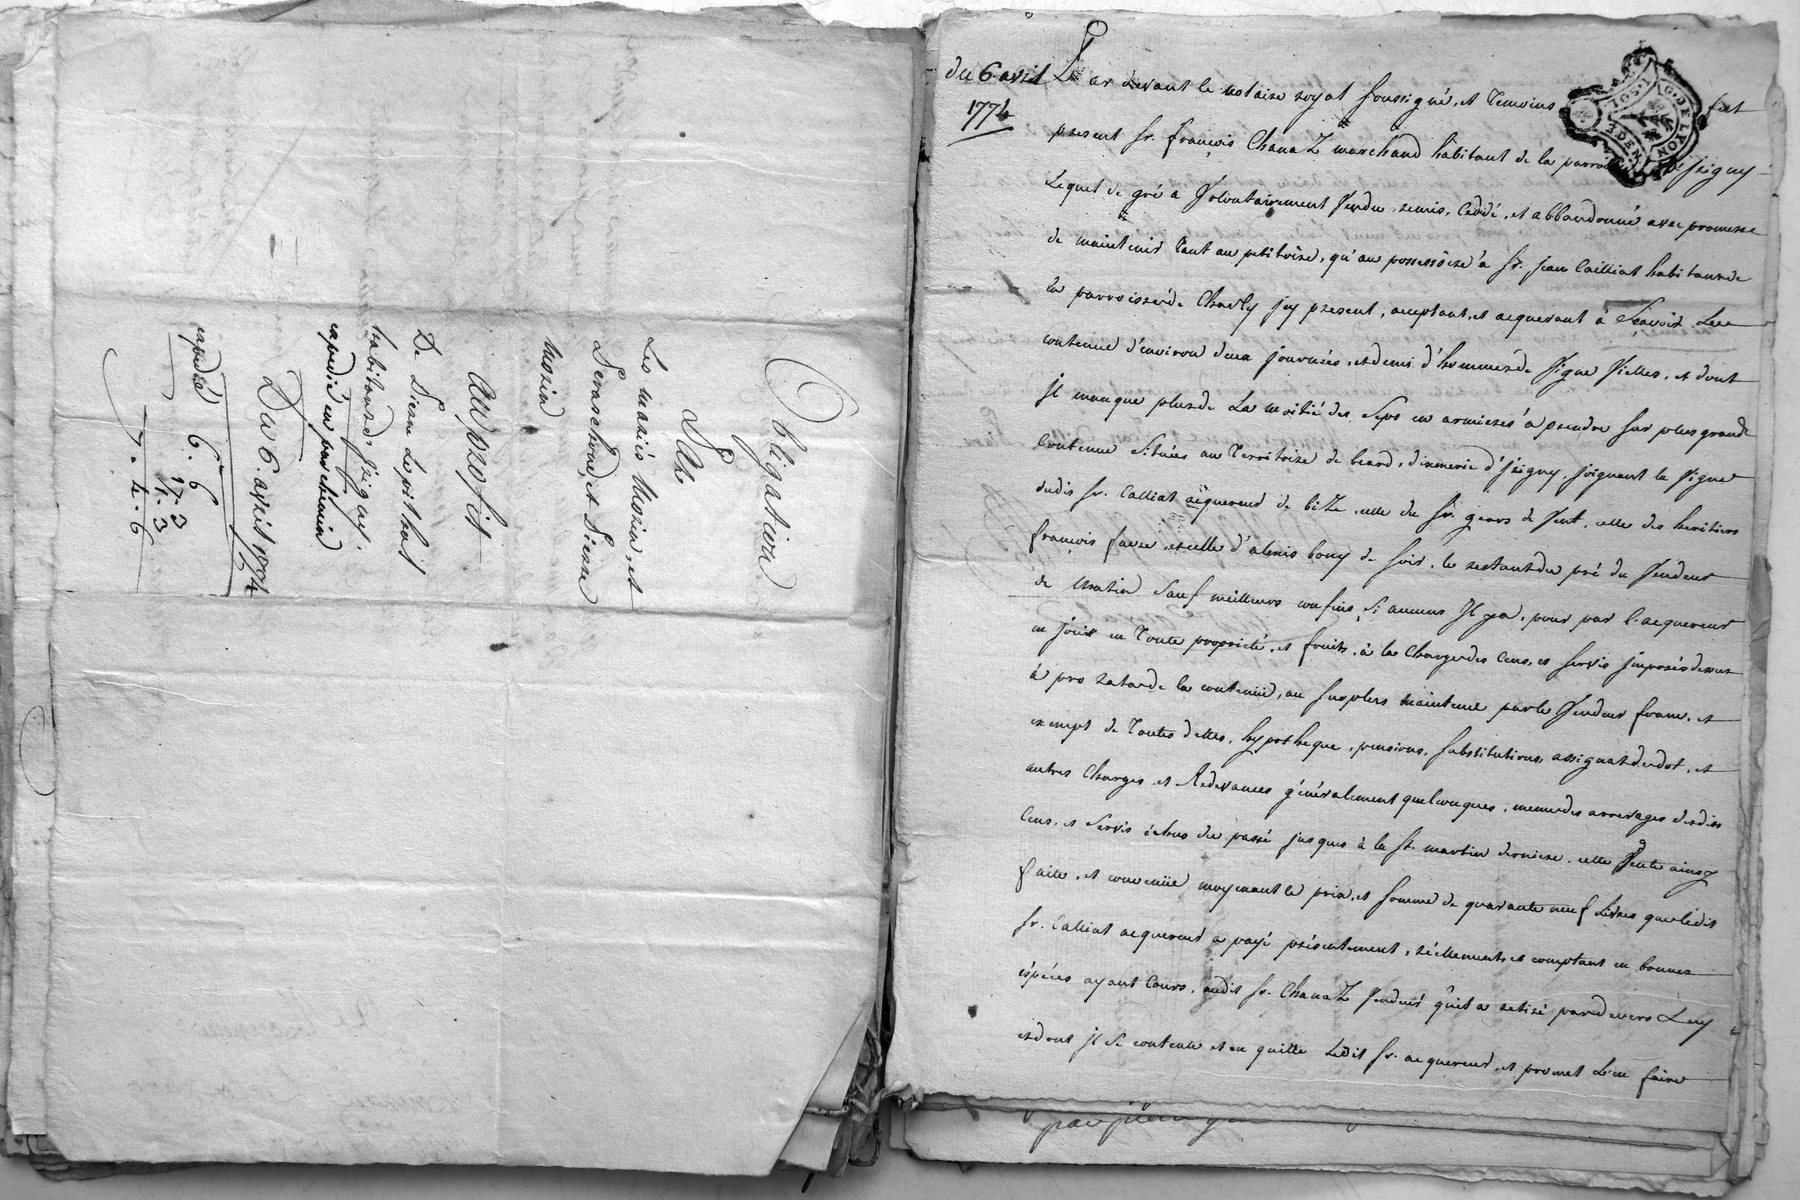 Obligation
Par
Les mariés Morin, et
Benaschon, et Pierre
Morin
Au proffit
De Pierre Lepithal
habitant d'Irigny.
expedié en parchemin
Du 6. avril 1774
expedié
6. 6
17. 3
1. 3
7. 4. 6
du 6 avril
1774
Par devant le notaire royal soussigné, et temoins fut
present Sr. françois ChanaZ marchand habitant de la parroisse d'Irigny
Lequel de gré a Volontairement Vendu, remis, Ceddé, et abbandonné avec promesse
de maintenir tant au petitoire, qu'au possessoire à Sr. jean Cailliat habitant de
la parroisse de Charly jcy present, acceptant, et acquerant à Sçavoir Une
contenue d'environ deux journées, et demi d'hommée de Vigne Vielles, et dont
jl manque plus de La moitié des Seps en arnieres à prendre sur plus grande
Contenue Situées au Territoire de beard, dixmerie d'Irigny, joignant la Vigne
dudit Sr. Calliat acquereur de biZe, celle du Sr. geors de Vent, celle des heritiers
françois favre, et celle d'alexis bouy de Soir, le restant du pré du Vendeur
de Matin Sauf meilleurs confins Si aucuns Jl y a, pour par l'acquereur
en joüir en Toute proprieté, et fruits, à la Charge des Cens, et Servis jmposés dessus
à pro rata de la contenüe, au surplus maintenüe par le Vendeur franc, et
exempt de Toutes dettes, hypotheque, pensions, Substitutions, assignat de dot, et
autres Charges, et Redevances généralement quelconques, meme des arrerages desdits
Cens, et Servis échus du passé jusques à la St. martin derniere. cette Vente ainsy
faite, et convenüe moyenant le prix, et somme de quarante neuf Livres que ledit
Sr. Calliat acquereur a payé présentement, réellement, et comptant en bonnes
éspéces ayant Cours, audit Sr. ChanaZ Vendeur qu'il a retiré pardevers Luy
et dont jl Se contente et en quitte Ledit Sr. acquereur, et promet L'en faire